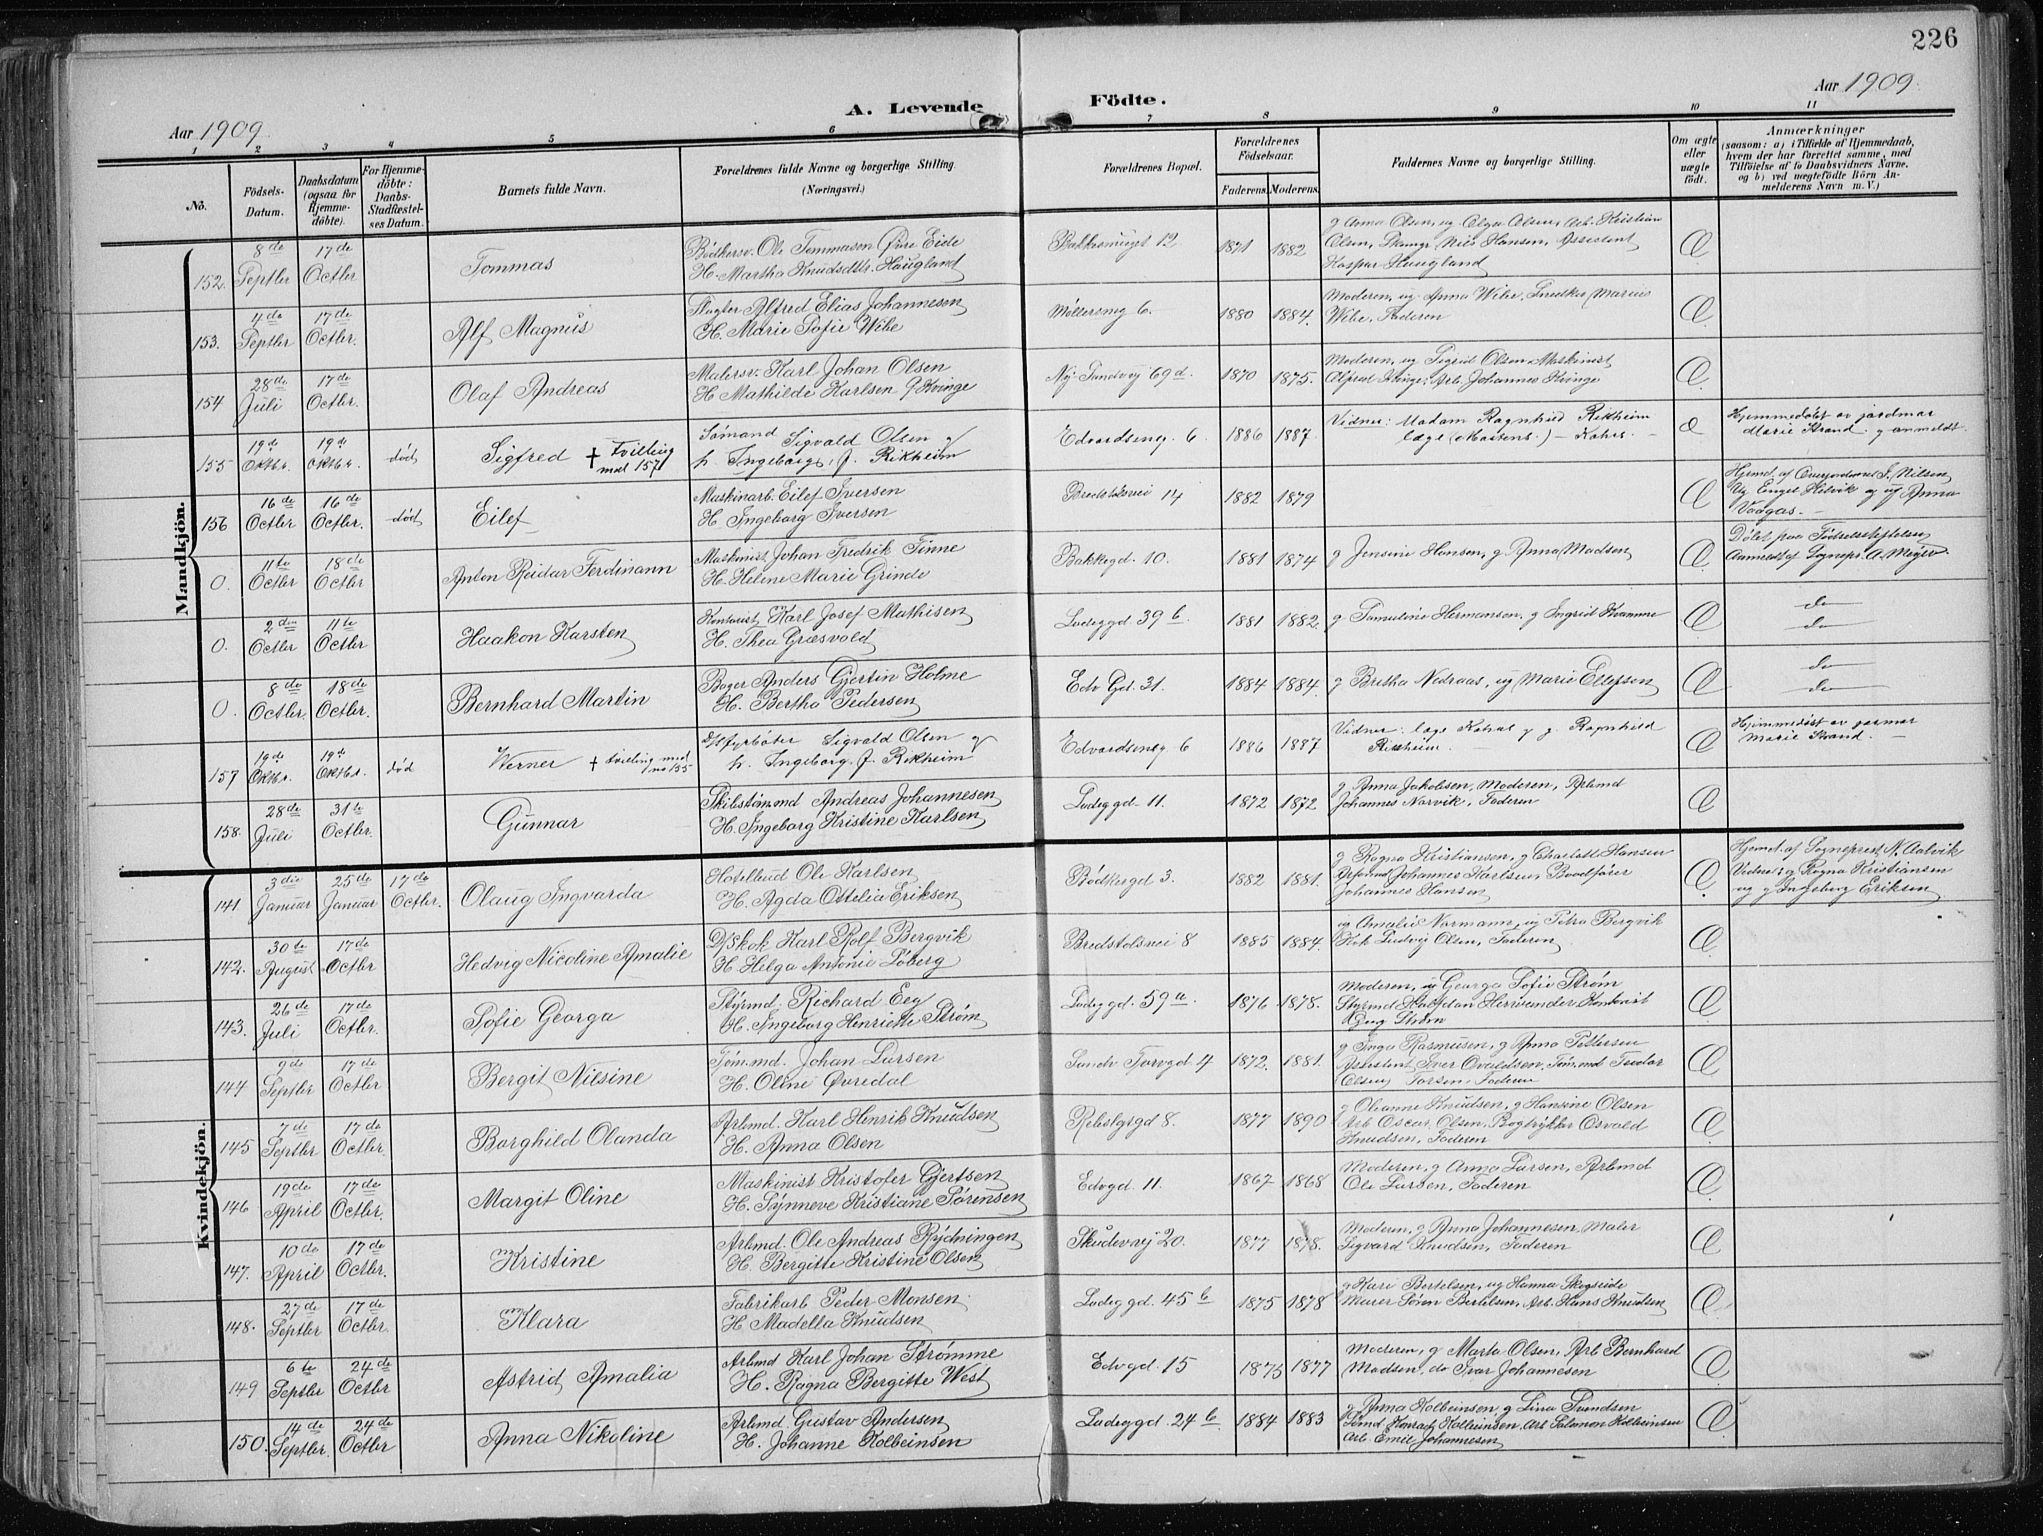 226
Aar 1909.
A. Levende Födte.
Aar 1909.
1 2 3 4 5 6 7 8 9 10 11
No.
Födsels-Datum.
Daabsdatum (ogsaa for Hjemme-döbte).
For Hjemme-döbte: Daabs-Stadfæstel-ses Datum.
Barnets fulde Navn.
Forældrenes fulde Navne og borgerlige Stilling. (Næringsvei.)
Forældrenes Bopæl.
Forældrenes Födselsaar.
Faderens. Moderens.
Faddernes Navne og borgerlige Stilling.
Om ægte eller uægte födt.
Anmærkninger
(saasom: a) i Tilfælde af Hjemmedaab, hvem der har forrettet samme, med Tilföielse af to Daabsvidners Navne, og b) ved uægtefödte Börn An-melderens Navn m. V.)
Mandkjön.
152. 8de Septbr 17de Octbr. Tommas
Bödkersv. Ole Tommasen Øvre Eide
H. Martha Knudsdtr. Haugland
Bakkesmuget 12 1871 1882
g Anna Olsen, ug Olga Olsen, Arb. Kristian
Olsen, Nils Hansen, Assistent
Kaspar Haugland
Æ
153. 4de Septbr 17de Octbr. Alf Magnus
Slagter Alfred Elias Johannesen
H. Marie Sofie Wibe
Møllersmg 6. 1880 1884.
Moderen, ug Anna Wibe, Snedker Marius
Wibe, Faderen
Æ
154 28de Juli 17de Octbr. Olaf Andreas
Malersv. Karl Johan Olsen
H Mathilde Karlsen Kvinge
Ny Sandvvj 69d. 1870 1875.
Moderen, ug Sigrid Olsen, Maskinist
Alfred Kvinge, Arb. Johannes Kvinge
Æ
155 19de Oktbr. 19de Oktbr. død Sigfred † tvilling med 157
Sømand Sigvald Olsen og
h. Ingeborg, f. Rikheim
Edvardsensg. 6 1886 1887.
Vidner: Madam Ragnhild Rikheim
læge (Martens) – Kahrs. –
Æ
Hjemmedøbt av jordmor
Marie Strand. g anmeldt.
156 16de Octbr 16de Octbr. død Eilef
Maskinarb. Eilef Iversen
H. Ingeborg Iversen
Bredstolsvei 14 1882 1879
Æ
Hjemd. af J. Nilsen
Ug Engel Hilvik og ug Anna
Vadgas. –
0. 11te Octbr 18de Octbr Anton Reidar Ferdinann
Maskinist Johan Fredrik Finne
H. Helene Marie Grinde
Bakkegd. 10. 1881 1874
g Jensine Hansen, g Anna Madsen
Æ
Döbt paa Födselsstiftelsen
Anmeldt af Sognepr. A. Meyer
0. 2den Octbr 11te Octbr. Haakon Karsten
Kontorist Karl Josef Mathisen
H. Thea Græsvold
Ladeggd 39 b. 1881 1882.
g Samuline Hermansen, g Ingrid Kvamme
Æ
do
do
0. 8de Octbr. 18de Octbr. Bernhard Martin
Bager Anders Gjertin Holme
H. Bertha Pedersen
Edv Gd. 31. 1884 1884.
g Bretha Nedraas, ug Marie Ellefsen
Æ
do
do
157 19de Oktbr. 19de Oktbr. død Werner † tvilling med no 155
Fyrbøter Sigvald Olsen og
h. Ingeborg, f. Rikheim
Edvardsensg 6 1886 1887
Vidner: læge Kahrs og g. Ragnhild
Rikheim –
Æ
Hjemmedøbt av jormor
Marie Strand. –
158. 28de Juli 31te Octbr. Gunnar
Skibstømmd Andreas Johannesen
H. Ingeborg Kristine Karlsen
Ladeggd 11. 1872 1872
g Anna Jakobsen, Moderen, Arbmd
Johannes Narvik, Faderen
Æ
Kvindekjön.
141 3die Januar 25de Januar 17de Octbr. Olaug Ingvarda
Hotelbud Ole Karlsen
H. Agda Ottelia Eriksen
Bödkergd 3. 1882 1881.
g Ragna Kristiansen, g Charlotte Hansen
Johannes Karlsen,
Johannes Hansen
Æ
Hjemd. af Sogneprest N. Aalvik
Vidner: g Ragna Kristiansen
og g Ingeborg Eriksen
142. 30te August 17de Octbr Hedvig Nicoline Amalie
D/skok Karl Rolf Bergvik
H Helga Antonie Søberg
Bredstolsvei 8 1885 1884.
ug Amalie Normann, ug Petra Bergvik
Kok Ludvig Olsen, Faderen
Æ
143. 26de Juli 17de Octbr. Sofie Georga
Styrmd. Richard Eeg
H. Ingeborg Henriette Strøm
Ladeggd. 59a. 1876 1878.
Moderen, ug Georga Sofie Strøm
Styrmd Halfdan Kontorist
Georg Strøm
Æ
144 9de Septbr 17de Octbr Bergit Nilsine
Tøm.md. Johan Larsen
H. Oline Øvredal
Sandv Torvgd 4 1872. 1881.
g Inga Rasmusen, g Anna Pettersen
Assistent Iver Tøm.md Teodor
Olsen, Faderen
Æ
145 7de Septbr 17de Octbr Borghild Olanda
Arbmd. Karl Henrik Knudsen
H. Anna Olsen
Rebslgrgd 8. 1877 1890
g Oleanne Knudsen, g Hansine Olsen
Arb Oscar Olsen, Bogtrykker Osvald
Knudsen, Faderen
Æ
146 19de April 17de Octbr. Margit Oline
Maskinist Kristofer Gjertsen
H. Synneve Kristiane Sørensen
Edvgd. 11. 1867 1868
Moderen, g Anna Larsen, Arbmd
Ole Larsen, Faderen
Æ
147. 10de April 17de Octbr. Kristine
Arbmd. Ole Andreas Rydningen
H. Bergitte Kristine Olsen
Skudevvj 20. 1877 1878.
Moderen, g Anna Johannesen, Maler
Sigvard Knudsen, Faderen
Æ
148. 27de Septbr 17de Octbr. Klara
Fabrikarb Peder Monsen
H Madella Knudsen
Ladeggd. 45 b 1875 1878
g Kari Bertelsen, ug Hanna Skogseide
Murer Søren Bertelsen, Arb. Hans Knudsen
Æ
149 6te Septbr 24de Octbr Astrid Amalia
Arbmd Karl Johan Strømme
H. Ragna Bergitte West
Edvgd 15 1875 1877
Moderen, g Marta Olsen, Arb Bernhard
Madsen, do Ivar Johannesen
Æ
150. 14de Septbr 24de Octbr Anna Nikoline
Arbmd. Gustav Andersen
H. Johanne Kolbeinsen
Ladeggd. 24 b 1884 1883
g Anna Kolbeinsen, g Lina Sundsen
Konrad Kolbeinsen, Arb Salomon Kolbeinsen
Arb. Emil Johannesen
Æ